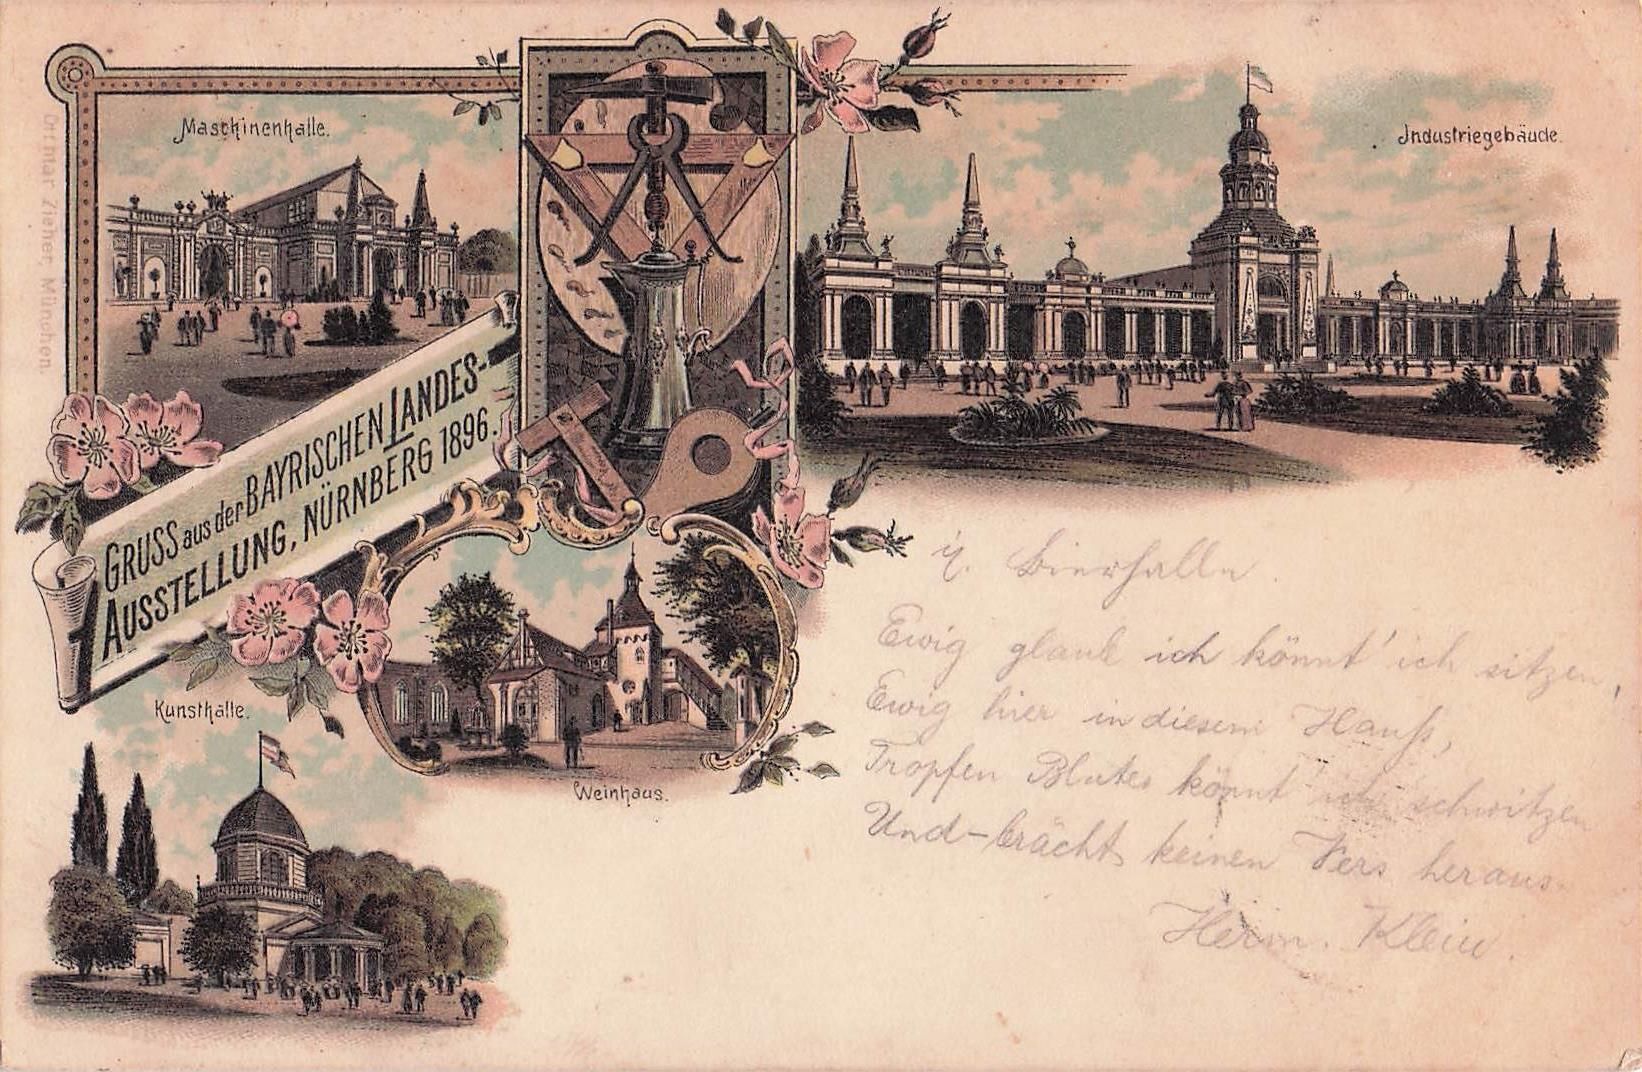 Maschinenhalle.
Industriegebäude.
Ottmar Zieher, München.
GRUSS aus der BAYRISCHEN LANDES-
AUSSTELLUNG, NÜRNBERG 1896.
Bierhalle.
Ewig glaub ich könnt' ich sitzen,
Ewig hier in diesem Hauß,
Tropfen Blutes könnt' ich schwitzen
Und brächt keinen Vers heraus.
Herm. Klein.
Kunsthalle.
Weinhaus.